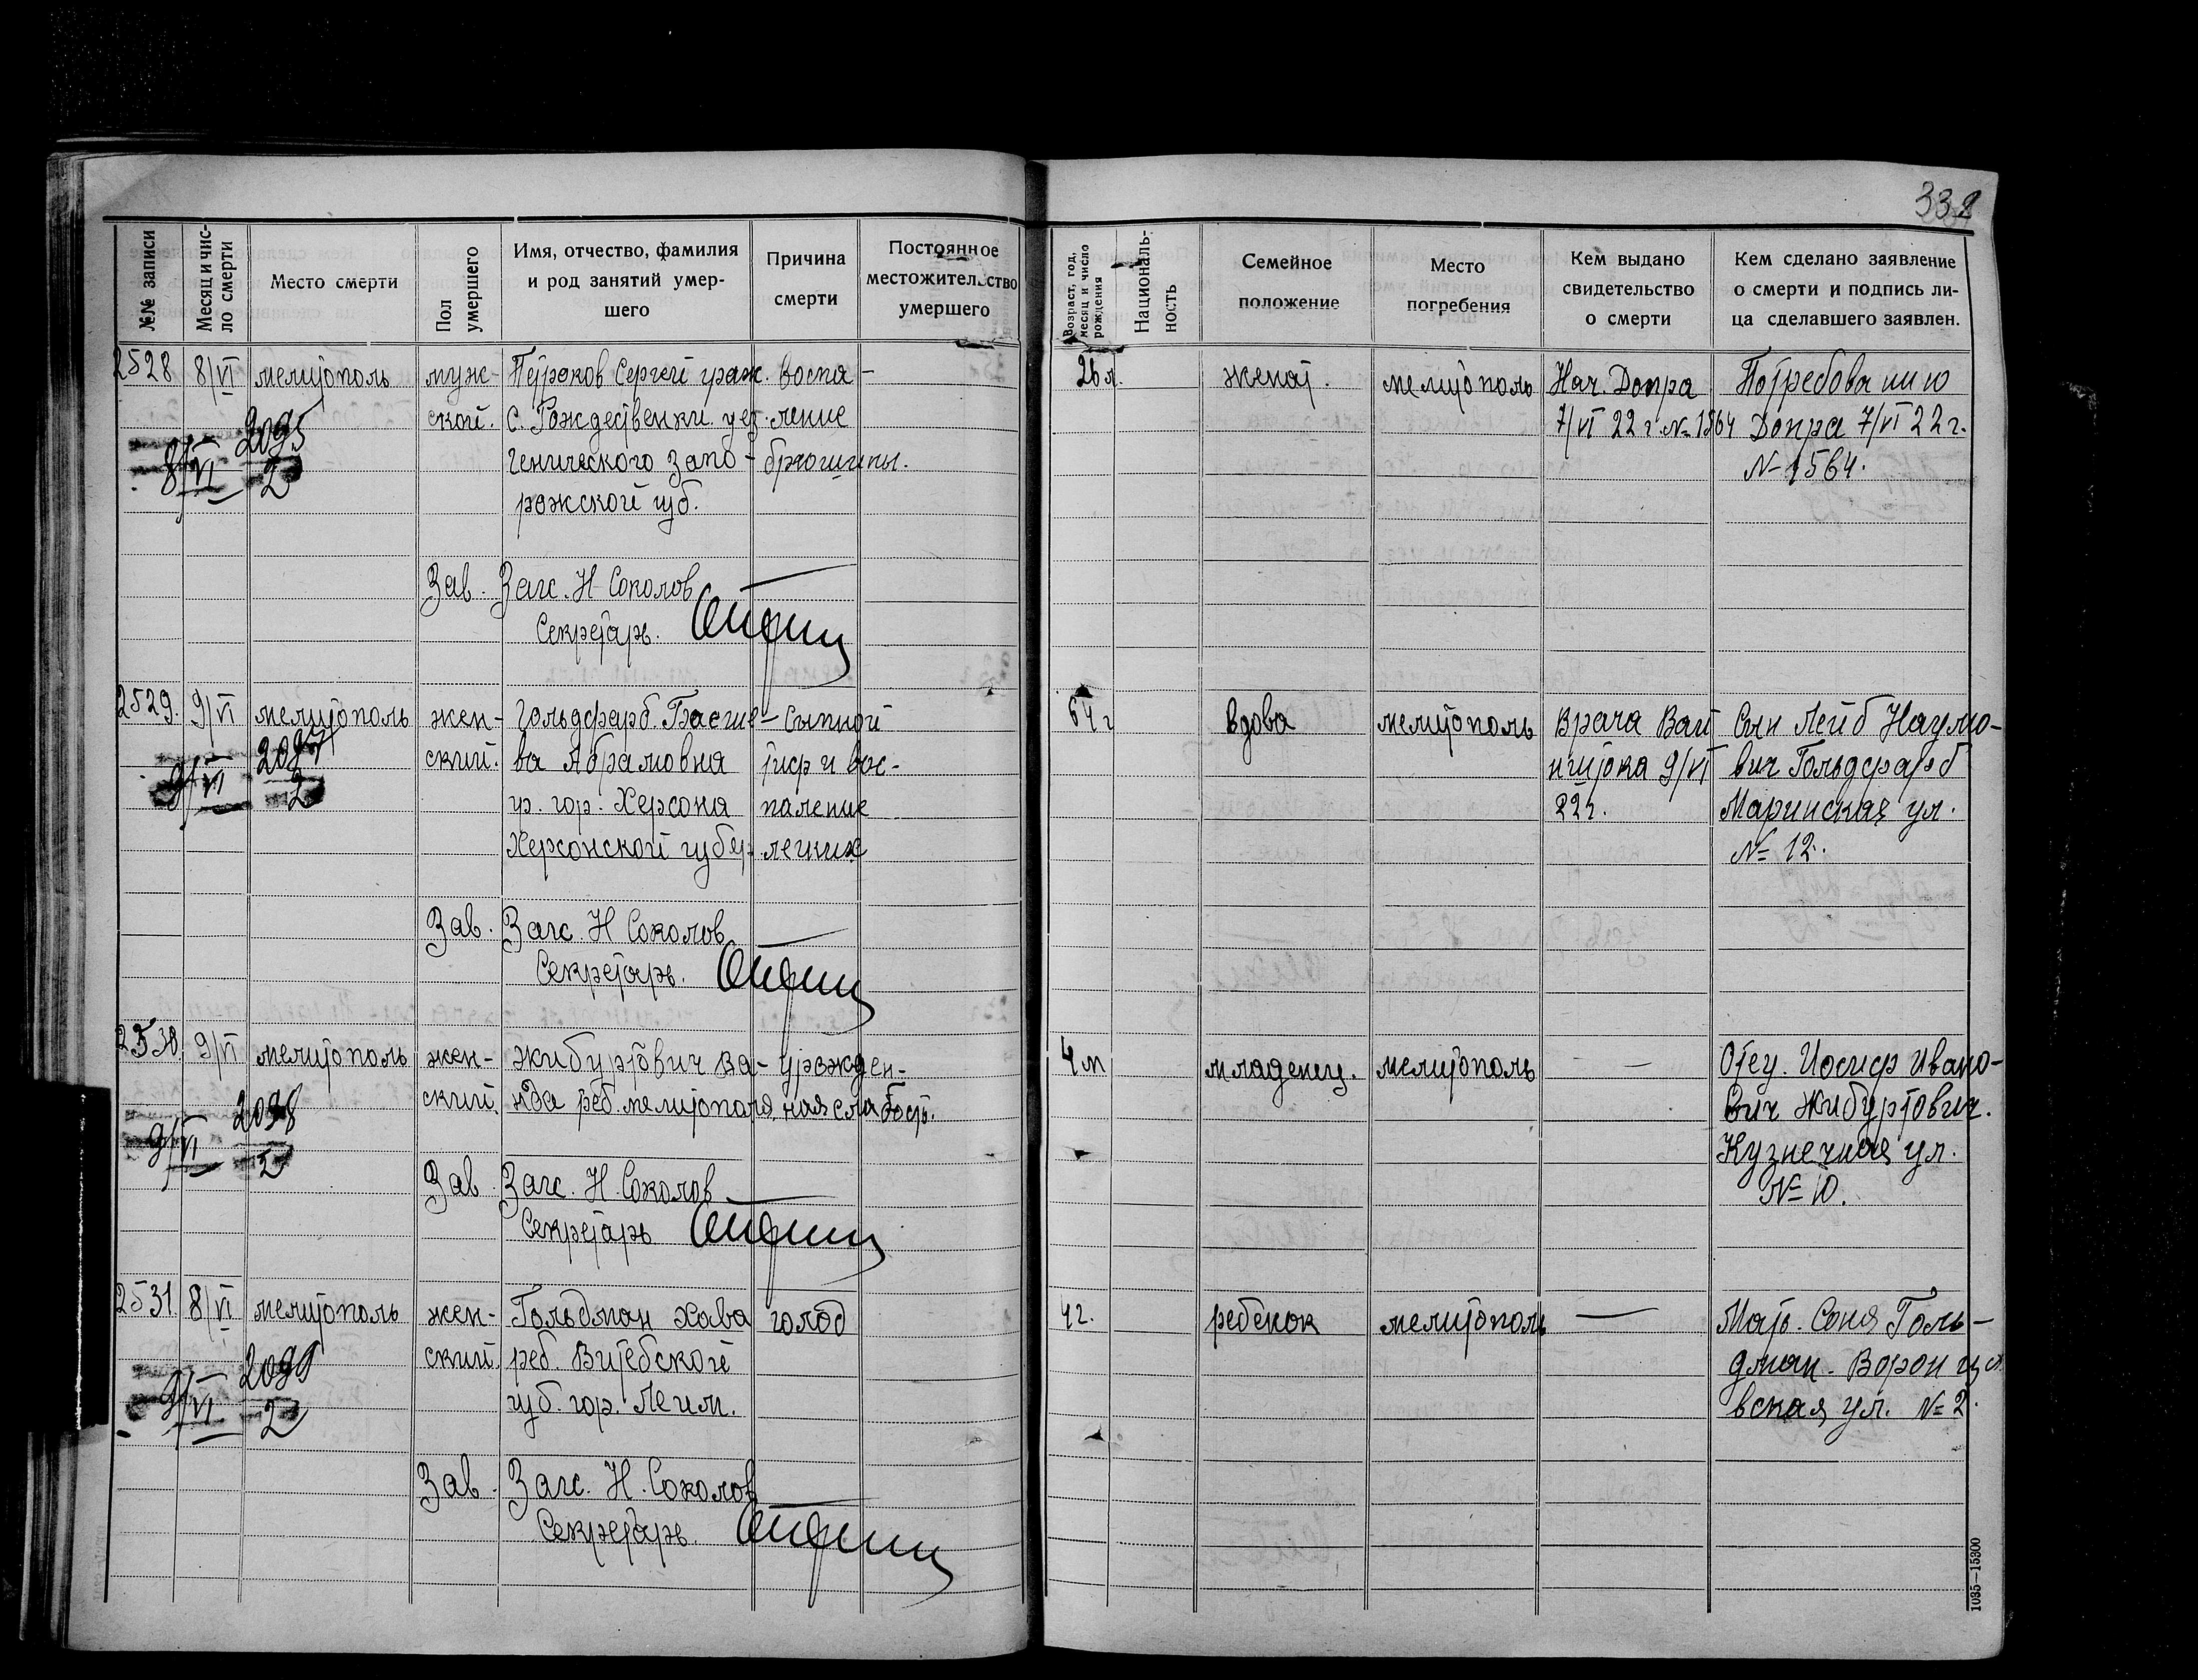 338
№№ записи
Месяц и чис-
ло смерти
Место смерти
Пол
умершего
Имя, отчество, фамилия
и род занятий умер-
шего
Причина
смерти
Постоянное
местожительство
умершего
Возраст, год,
месяц и число
рождения
Националь-
ность
Семейное
положение
Место
погребения
Кем выдано
свидетельство
о смерти
Кем сделано заявление
о смерти и подпись ли-
ца сделавшего заявлен.
2528 8/VI мелитополь муж- Петраков Сергей граж. воспа- 26 л. женат. мелитополь Нач. Допра Потребованию
ской. с. Рождественки. уез. ление 7/VI 22 г. № 1564 Допра 7/VI 22 г.
8/VI 2095
2
генического запо- брюшины. № 1564.
рожской губ.
Зав. Загс. Н Соколов
Секретарь.
2529. 9/VI мелитополь жен- Гольдфарб. сыпной 64 г вдова мелитополь Врача Сын Лейб Наумо-
ский. ва Абрамовна тиф и вос- 9/VI вич Гольдфарб
9/VI 2097
2
гр. гор. Херсона паление 22 г. Маринская ул.
Херсонской губер. легких № 12.
Зав. Загс. Н Соколов
Секретарь.
2530 9/VI мелитополь жен- Жибуртович Ва- урожден- 4 м младенец. мелитополь — Отец. Иосиф Ивано-
ский. нда реб. мелитополя ная слабость. вич Жибуртович.
9/VI 2098
2
Кузнечная ул.
№ 10.
Зав. Загс. Н. Соколов
Секретарь
2531. 8/VI мелитополь жен- Гольдман Хава голод 4 г. ребенок мелитополь — Мать. Соня Голь-
ский. реб. Витебской дман. Воронцо
9/VI 2099
2
губ. гор. вская ул. № 2.
Зав. Загс. Н. Соколов
Секретарь.
1035—15300